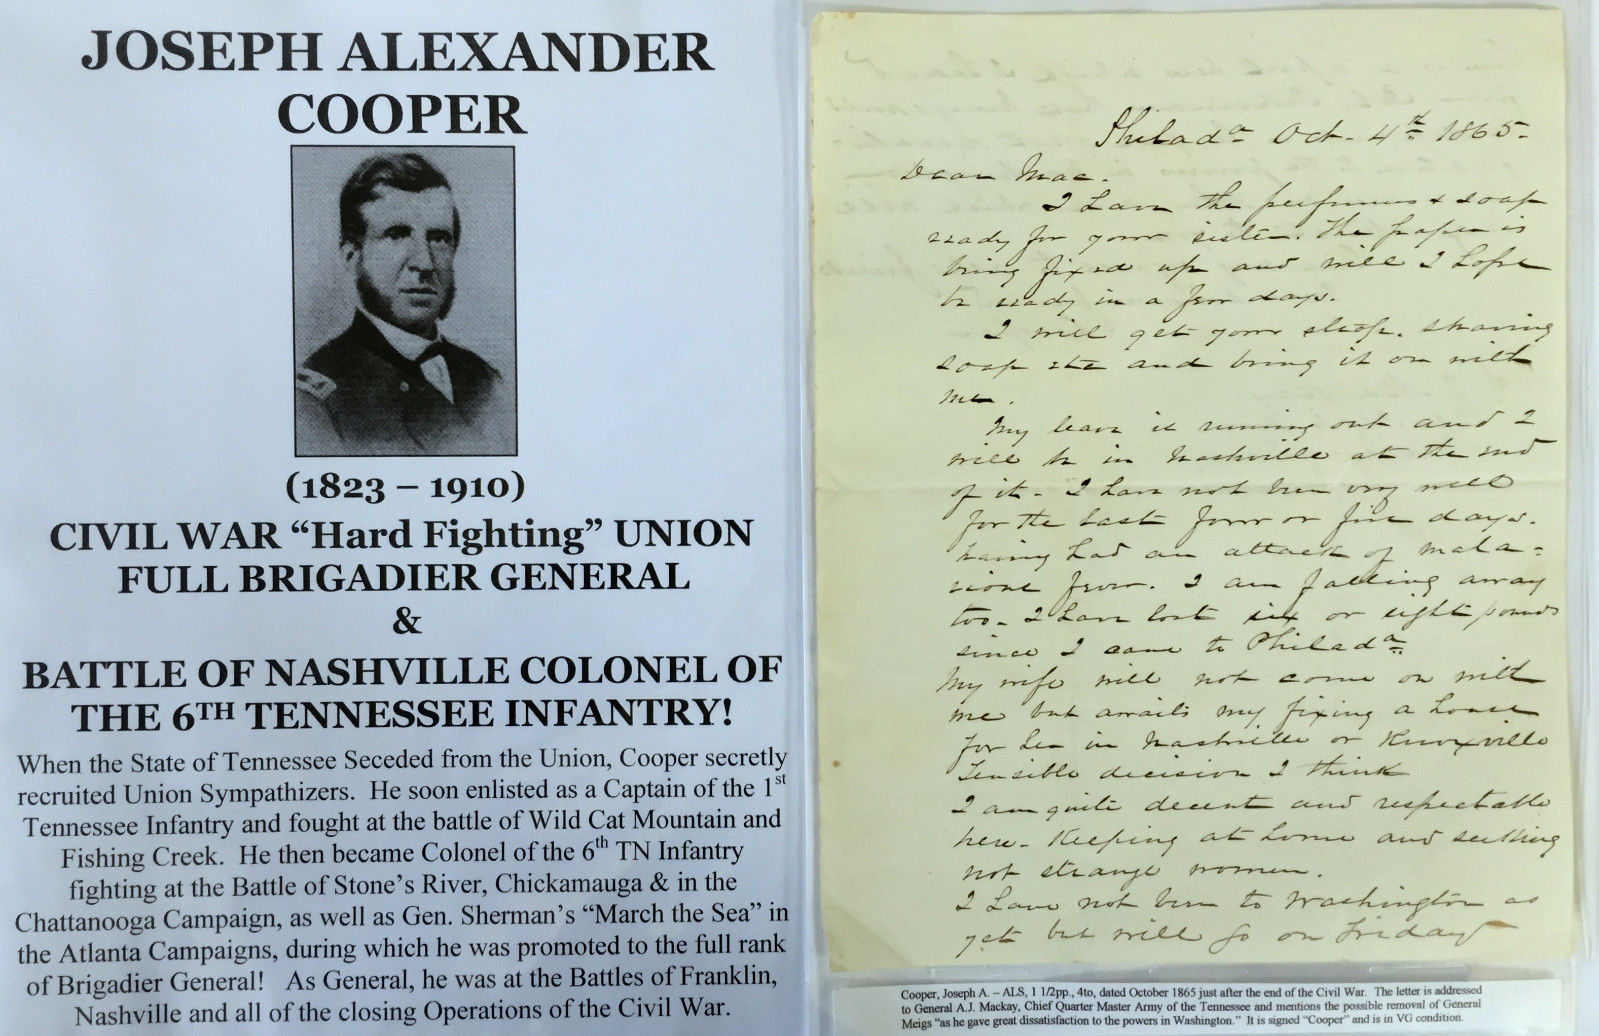 JOSEPH ALEXANDER
COOPER
(1823 – 1910)
CIVIL WAR “Hard Fighting” UNION
FULL BRIGADIER GENERAL
&
BATTLE OF NASHVILLE COLONEL OF
THE 6TH TENNESSEE INFANTRY!
When the State of Tennessee Seceded from the Union, Cooper secretly
recruited Union Sympathizers. He soon enlisted as a Captain of the 1st
Tennessee Infantry and fought at the battle of Wild Cat Mountain and
Fishing Creek. He then became Colonel of the 6th TN Infantry
fighting at the Battle of Stone’s River, Chickamauga & in the
Chattanooga Campaign, as well as Gen. Sherman’s “March the Sea” in
the Atlanta Campaigns, during which he was promoted to the full rank
of Brigadier General! As General, he was at the Battles of Franklin,
Nashville and all of the closing Operations of the Civil War.
Philada Oct. 4th 1865.
Dear Mac.
I have the perfumes & soap
ready for your sister. The paper is
being fixed up and will I hope
be ready in a few days.
I will get your shaving
soap etc and bring it on with
me.
My leave is running out and I
will be in Nashville at the end
of it. I have not been very well
for the last four or five days.
having had an attack of mala=
rious fever. I am falling away
too. I have lost six or eight pounds
since I came to Philada.
My wife will not come on with
me but awaits my fixing a house
for her in Nashville or Knoxville
Sensible decision I think
I am quite decent and respectable
here. Keeping at home and seeking
not strange women.
I have not been to Washington as
yet but will go on Friday
Cooper, Joseph A. – ALS, 1 1/2pp., 4to, dated October 1865 just after the end of the Civil War. The letter is addressed
to General A.J. Mackay, Chief Quarter Master Army of the Tennessee and mentions the possible removal of General
Meigs “as he gave great dissatisfaction to the powers in Washington.” It is signed “Cooper” and is in VG condition.